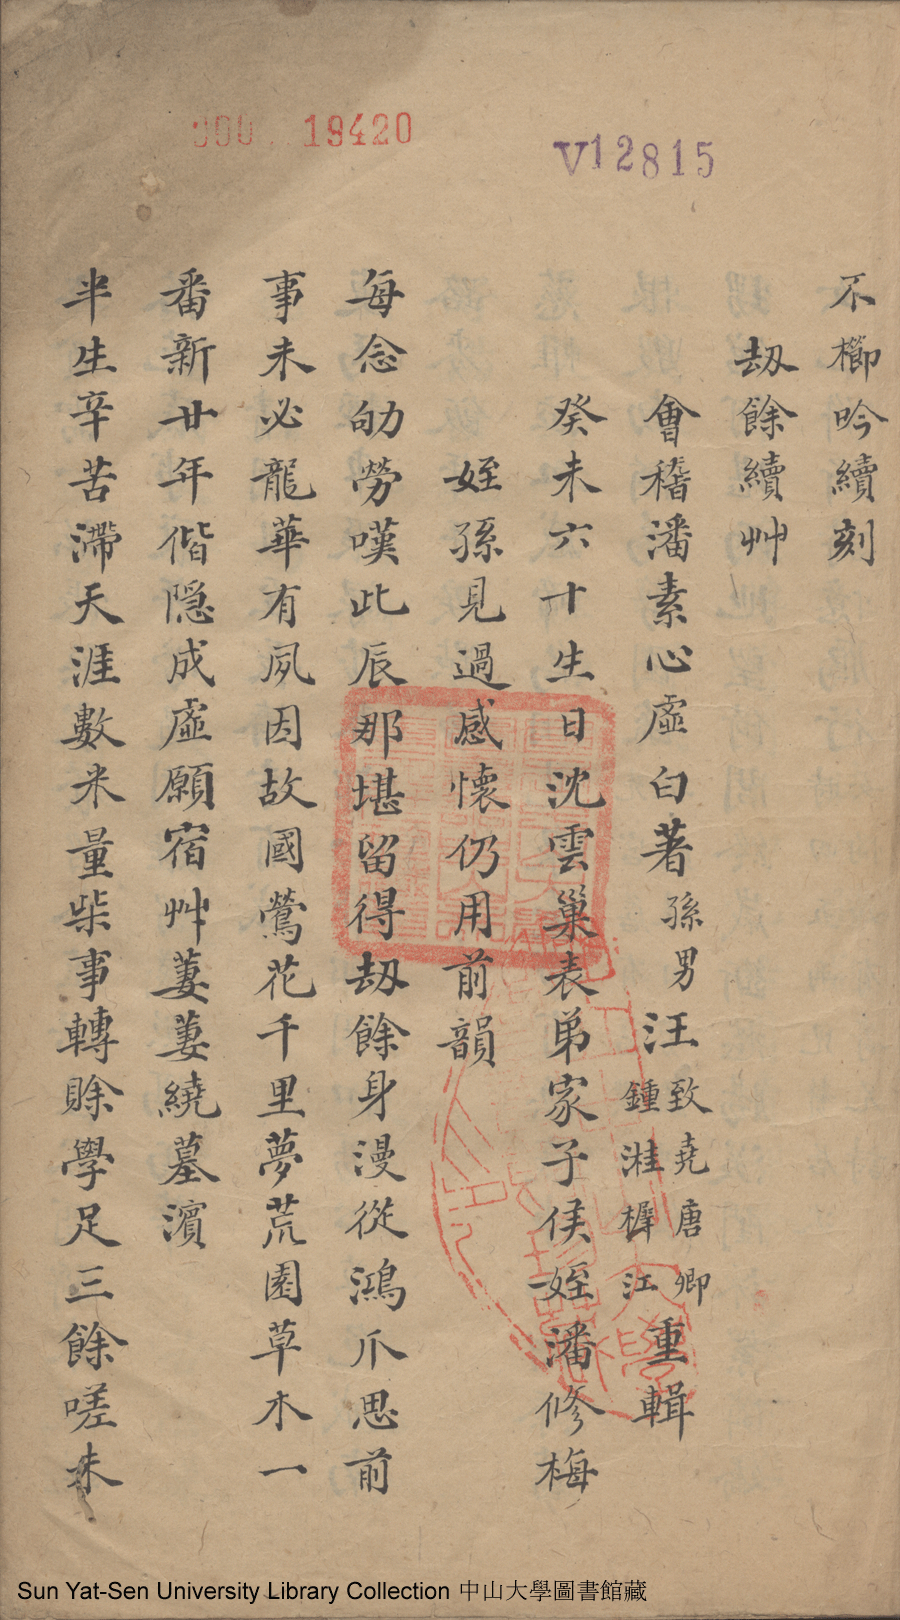 19420
V12815
不櫛吟續刻
刼餘續艸
會稽潘素心虛白著孫男汪致堯唐卿鍾溎樨江重輯
癸未六十生日沈雲巢表弟家子侯姪潘修梅
姪孫見過感懷仍用前韻
每念劬勞嘆此辰那堪留得刼餘身漫從鴻爪思前
事未必龍華有夙因故國鶯花千里夢荒園草木一
番新廿年偕隱成虛願宿艸萋萋繞墓濱
半生辛苦滯天涯數米量柴事轉賒學足三餘嗟未
Sun Yat-Sen University Library Collection 中山大學圖書館藏